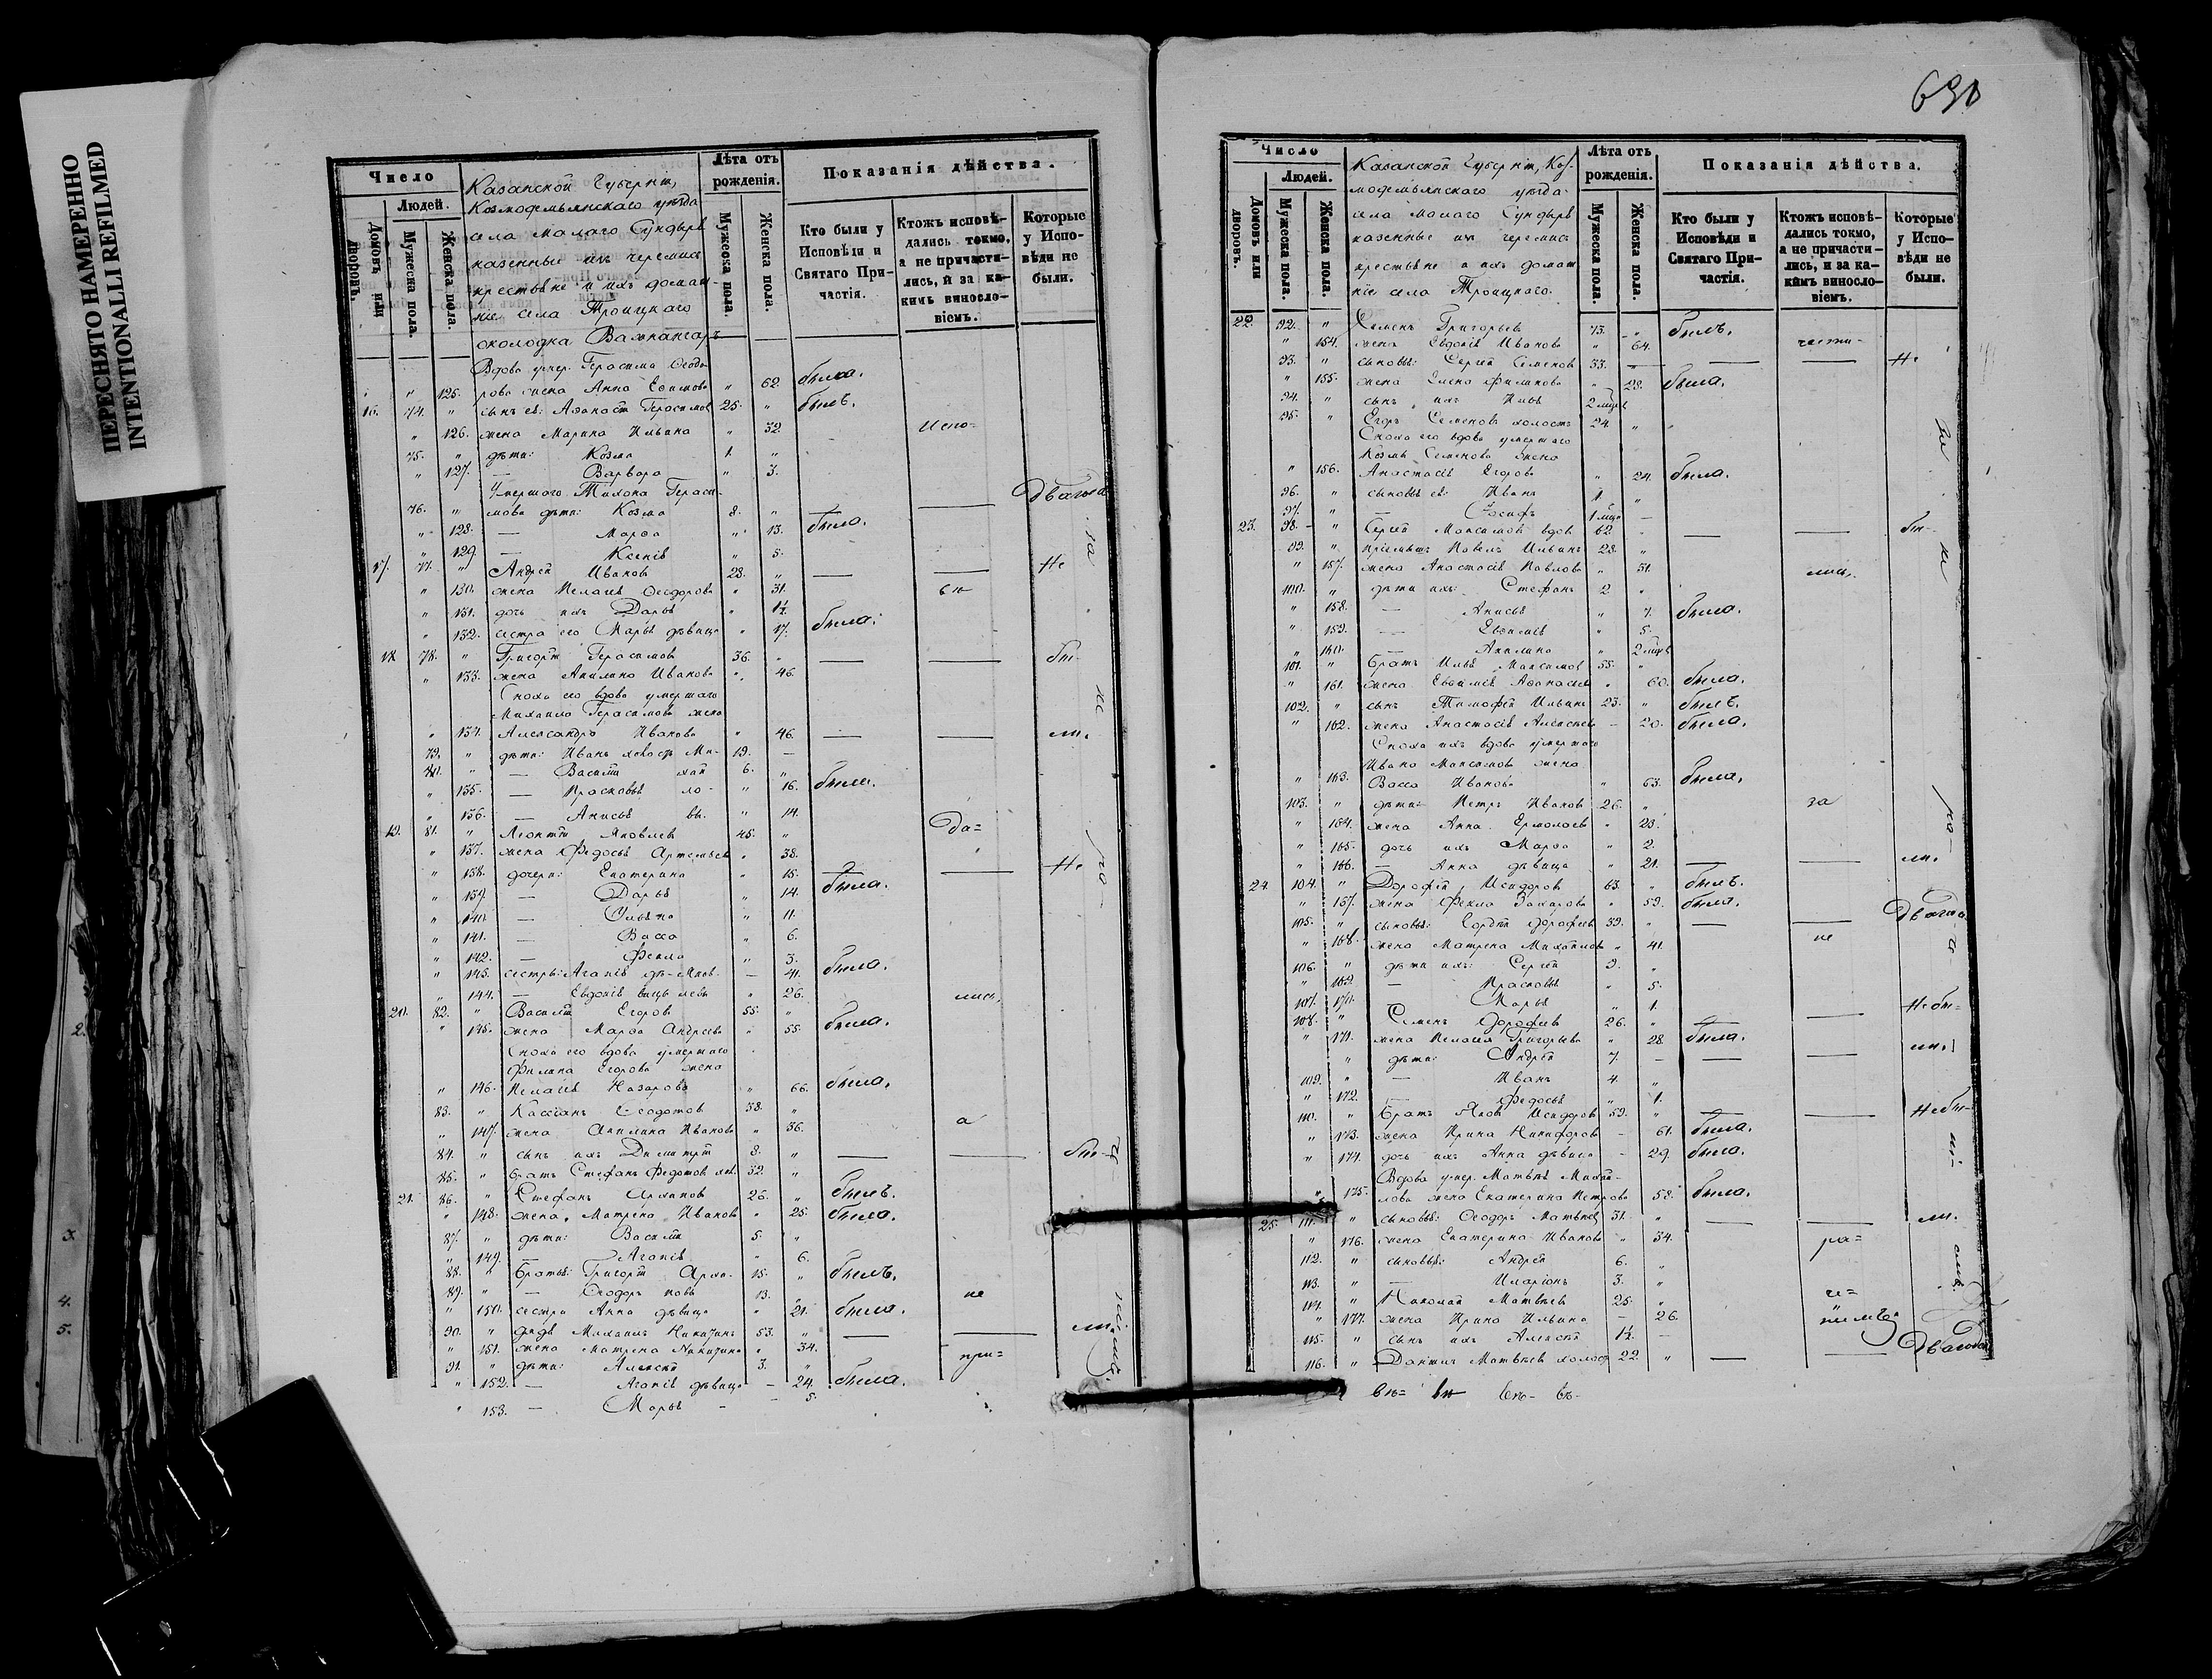 ПЕРЕСНЯТО НАМЕРЕННО
INTENTIONALLI REFILMED
2.
3.
4.
5.
Число
Людей.
Домовъ или дворовъ.
Мужеска пола.
Женска пола.
Казанской Губерніи,
Козмодемьянскаго уѣзда
села Малаго Сундыря
казенные изъ черемисъ
крестьяне и ихъ домаш-
ніе села Троицкаго
околодка
Лѣта отъ рожденія.
Мужеска пола.
Женска пола.
Показанія дѣйства.
Кто были у Исповѣди и Святаго При-частія.
Ктожъ исповѣ-дались токмо, а не причасти-лись, и за ка-кимъ виносло-віемъ.
Которые у Испо-вѣди не были.
Вдова умер. Герасима Ѳеодо-
" " 125. рова жена Анна Евѳимова " 62. была.
16. 74. " сынъ ея: Аѳанасій Герасимовъ 25. " былъ.
" 126. жена Марина Ильина " 32. Испо-
75. " дѣти: Козма 1. "
" 127. — Варвара " 3.
Умершаго Тихона Гераси-
76. " мова дѣти: Козма 8. " — — Дважа
" 128. — Марѳа " 13. была.
" 129. — Ксенія " 5.
17. 77. " Андрей Ивановъ 28. " — — Не
" 130. жена Пелагея Ѳеодорова " 31. вѣ
" 131. дочь ихъ Дарья " 1½
" 132. сестра его Марья дѣвица " 17. была.
18. 78. " Григорій Герасимовъ 36. " — — бы-
" 133. жена Акилина Иванова " 46.
Сноха его вдова умершаго
Михаила Герасимова жена
" 134. Александра Иванова " 46. — — ли.
79. " дѣти: Иванъ холостъ Ми- 19. —
80. " — Василій хай 6. "
" 135. — Прасковья ло- " 16. была.
" 136. — Анисья вы. " 14.
19. 81. " Леонтій Яковлевъ 45. " Да=
" 137. жена Ѳедосья Артемьева " 38.
" 138. дочери: Екатерина " 15. — — Не
" 139. — Дарья " 14. была.
" 140. — Ульяна " 11.
" 141. — Васса " 6.
" 142. — Фекла " 3.
" 143. сестры: Агапія дѣ- Яков- — 41. была.
" 144. — Евдокія вицы левы " 26. лись,
20. 82. " Василій Егоровъ 55. "
" 145. жена Марѳа Андреева " 55. была.
Сноха его вдова умершаго
Филипа Егорова жена
" 146. Пелагея Назарова " 66. была.
83. " Кассіанъ Ѳеодотовъ 58. "
" 147. жена Акилина Иванова " 36. а
84. " сынъ ихъ Димитрій 8. " — — бы-
85. " братъ Стефанъ Федотовъ хол. 32. "
21. 86. " Стефанъ Архиповъ 26. " былъ.
" 148. жена Матрена Иванова " 25. была.
87. " дѣти: Василій 5. "
" 149. — Агапія " 6.
88. " братья: Григорій Архи- 15. " былъ.
89. " — Ѳеодоръ повы 13. " не
" 150. сестра Анна дѣвица " 21. была.
90. " дядя Михаилъ Никитинъ 53. " — — ли.
" 151. жена Матрена Никитина " 34. при=
91. " дѣти: Алексѣй 3. "
" 152. — Агапія дѣвица — 24. была.
" 153. — Марья — 5.
за
не
по-
690
Число
Людей.
Домовъ или дворовъ.
Мужеска пола.
Женска пола.
Казанской Губерніи, Коз-
модемьянскаго уѣзда
села Малаго Сундыря
казенные изъ черемисъ
крестьяне и ихъ домаш-
ніе села Троицкаго.
Лѣта отъ рожденія.
Мужеска пола.
Женска пола.
Показанія дѣйства.
Кто были у Исповѣди и Святаго При-частія.
Ктожъ исповѣ-дались токмо, а не причасти-лись, и за ка-кимъ виносло-віемъ.
Которые у Испо-вѣди не были.
22. 92. " Семенъ Григорьевъ 73. " былъ.
" 154. жена Евдокія Иванова " 64. части-
93. " сыновья: Сергій Семеновъ 33. — — — Не
" 155. жена Елена Филипова " 28. была.
94. " сынъ ихъ Илья 2 мѣсяц
95. " Егоръ Семеновъ холостъ 24. "
Сноха его вдова умершаго
Козмы Семенова жена
" 156. Анастасія Егорова " 24. была.
96. " сыновья ея: Иванъ 1. "
97. " — Іосифъ 1 мѣсяц —
23. 98. " Сергій Максимовъ вдов 62. " — — бы-
99. " пріемышъ Павелъ Ильинъ 28. "
" 157. жена Анастасія Павлова " 31. лись.
100. " дѣти ихъ: Стефанъ 2 "
" 158. — Анисья " 7. была.
" 159. — Евѳимія " 5.
" 160. — Акилина " 2 мѣсяц
101. " братъ Илья Максимовъ 55. "
" 161. жена Евѳимія Аѳанасьева " 60. была.
102. " сынъ Тимофей Ильинъ 23. " былъ.
" 162. жена Анастасія Алексѣева — 20. была.
Сноха ихъ вдова умершаго
Ивана Максимова жена
" 163. Васса Иванова " 63. была.
103. " дѣти: Петръ Ивановъ 26. " за
" 164. жена Анна Ермолаева " 23.
" 165. дочь ихъ Марѳа " 2.
" 166. — Анна дѣвица " 21. — — ли.
24. 104. " Дорофей Исидоровъ 63. " былъ.
" 167. жена Фекла Захарова " 59. была.
105. " сыновья: Гордей Дорофеевъ 39. " — — Дважа
" 168. жена Матрена Михайлова " 41. не
106. " дѣти ихъ: Сергій 9. "
" 169. — Прасковья " 5.
107. 170. — Марья " 1. Не бы-
108. " Семенъ Дорофеевъ 26. " — —
" 171. жена Пелагея Григорьева " 28 была.
" дѣти: Андрей 7. — — — ли.
109. " — Иванъ 4. "
" 172. — Ѳедосья " 1.
110. " братъ Яковъ Исидоровъ 59. " — — Небы-
" 173. жена Ирина Никифорова — 61. была.
" 174. дочь ихъ Анна дѣвица — 29. была.
Вдова умер. Матвѣя Михай-
" 175. лова жена Екатерина Петрова 58. была.
25. 111. " сыновья: Ѳеодоръ Матвѣевъ 31. " — — ли.
" 176. жена Екатерина Иванова " 34. ра=
112. " сыновья: Андрей 6. "
113. " — Иларіонъ 3. "
114. " Николай Матвѣевъ 25. "
" 177. жена Ирина Ильина — 26.
115. " сынъ ихъ Алексѣй 1½ —
116. " Даніилъ Матвѣевъ холост 22. " — —